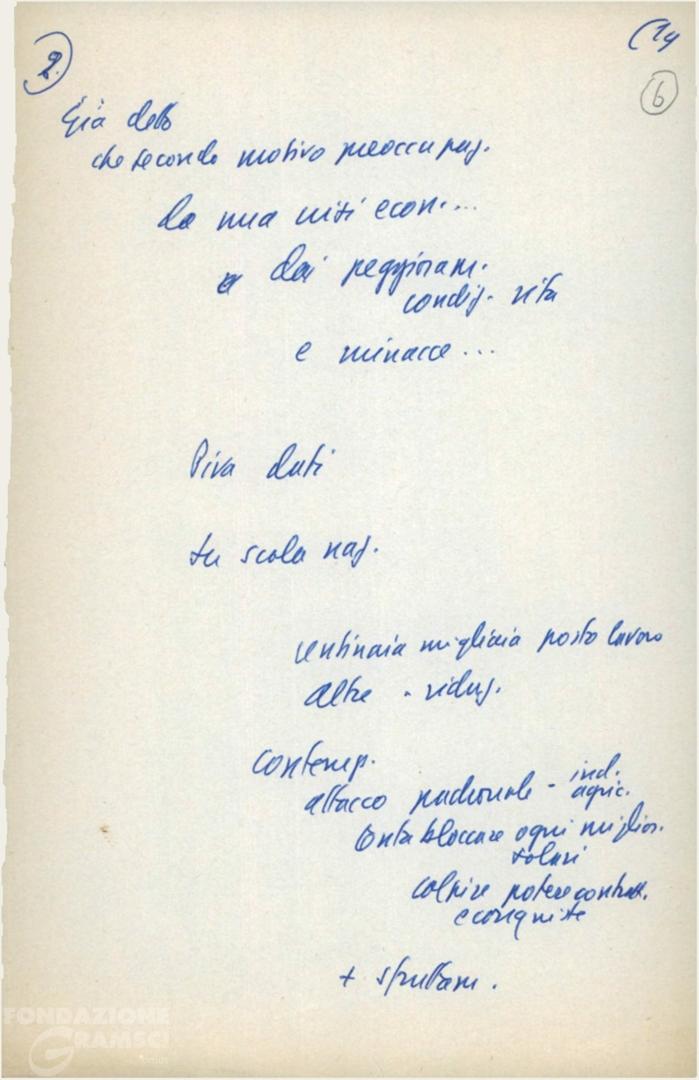 2.
(14
6
Già detto
che secondo motivo preoccupaz.
la crisi econ....
e dai peggioram.
condiz. vita
e minacce...
dati
su scala naz.
centinaia migliaia posto lavoro
altre - riduz.
Contemp.
attacco padronale - ind.
agric.
bloccare ogni miglior.
salari
colpire potere contratt.
e conquiste
+ sfruttam.
FONDAZIONE
GRAMSCI